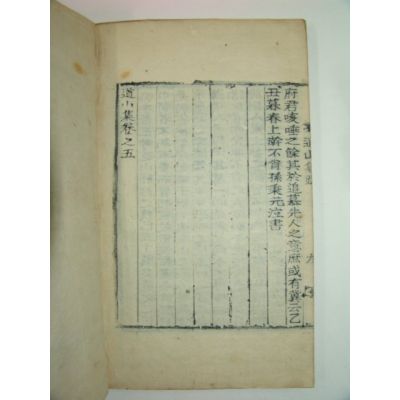 府君咳唾之餘其於追慕先人之意庶或有冀云乙
丑暮春上澣不肖孫秉元泣書
道山集卷之五